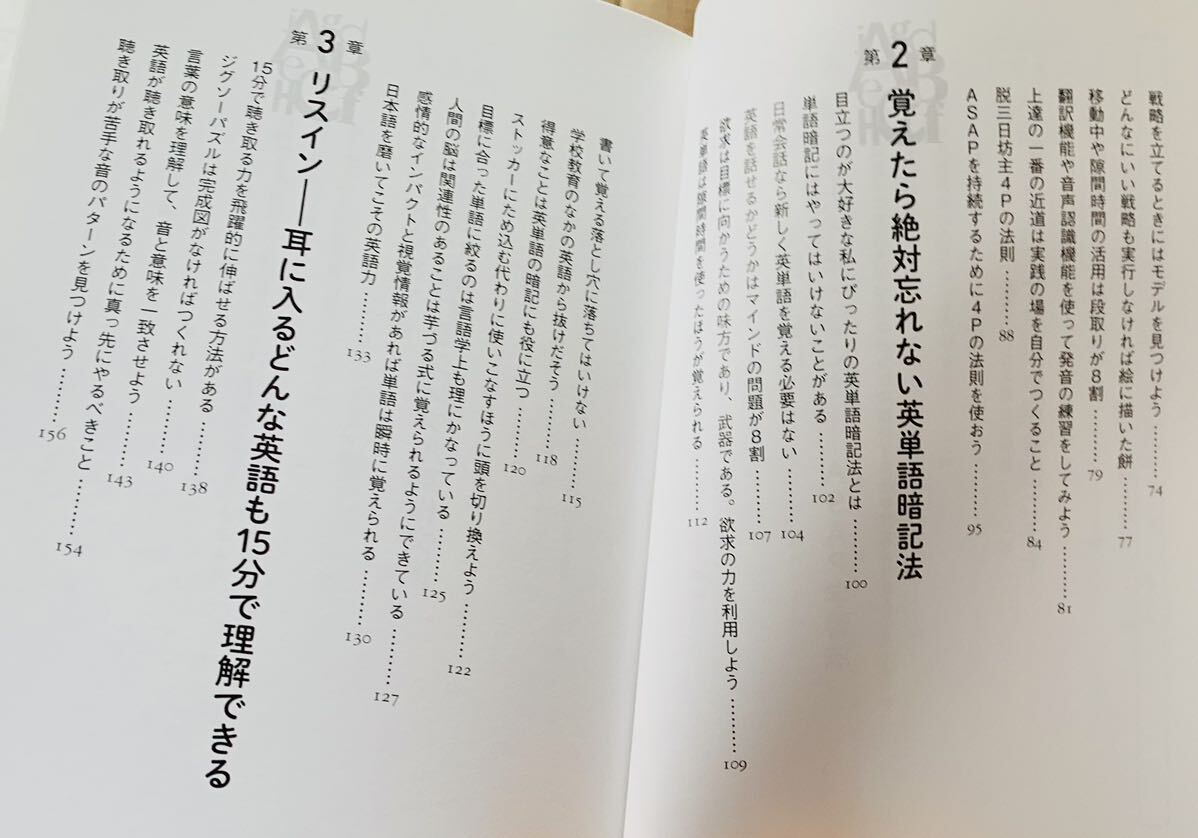 戦略を立てるときにはモデルを見つけよう………74
どんなにいい戦略も実行しなければ絵に描いた餅………77
移動中や隙間時間の活用は段取りが8割………79
翻訳機能や音声認識機能を使って発音の練習をしてみよう………81
上達の一番の近道は実践の場を自分でつくること………84
脱三日坊主4Pの法則………88
ASAPを持続するために4Pの法則を使おう………95
第2章 覚えたら絶対忘れない英単語暗記法
目立つのが大好きな私にぴったりの英単語暗記法とは………100
単語暗記にはやってはいけないことがある………102
日常会話なら新しく英単語を覚える必要はない………104
英語を話せるかどうかはマインドの問題が8割………107
欲求は目標に向かうための味方であり、武器である。欲求の力を利用しよう………109
英単語は隙間時間を使ったほうが覚えられる………112
書いて覚える落とし穴に落ちてはいけない………115
学校教育のなかの英語から抜けだそう………118
得意なことは英単語の暗記にも役に立つ………120
ストッカーにため込む代わりに使いこなすほうに頭を切り換えよう………122
目標に合った単語に絞るのは言語学上も理にかなっている………125
人間の脳は関連性のあることは芋づる式に覚えられるようにできている………127
感情的なインパクトと視覚情報があれば単語は瞬時に覚えられる………130
日本語を磨いてこその英語力………133
第3章 リスイン――耳に入るどんな英語も15分で理解できる
15分で聴き取る力を飛躍的に伸ばせる方法がある………138
ジグソーパズルは完成図がなければつくれない………140
言葉の意味を理解して、音と意味を一致させよう………143
英語が聴き取れるようになるために真っ先にやるべきこと………154
聴き取りが苦手な音のパターンを見つけよう………156